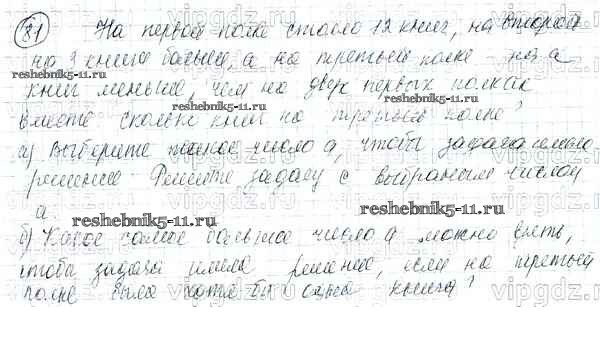 81 На первой полке стояло 12 книг, на второй
на 3 книги больше, а на третьей полке на а
книг меньше, чем на двух первых полках
вместе. сколько книг на третьей полке?
а) Выберите такое число а, чтобы задача имела
решение. Решите задачу с выбранным числом
а.
б) Какое самое большое число а можно взять,
чтобы задача имела решение, если на третьей
полке была хотя бы одна книга?
reshebnik5-11.ru
reshebnik5-11.ru
reshebnik5-11.ru
reshebnik5-11.ru
vipgdz.ru